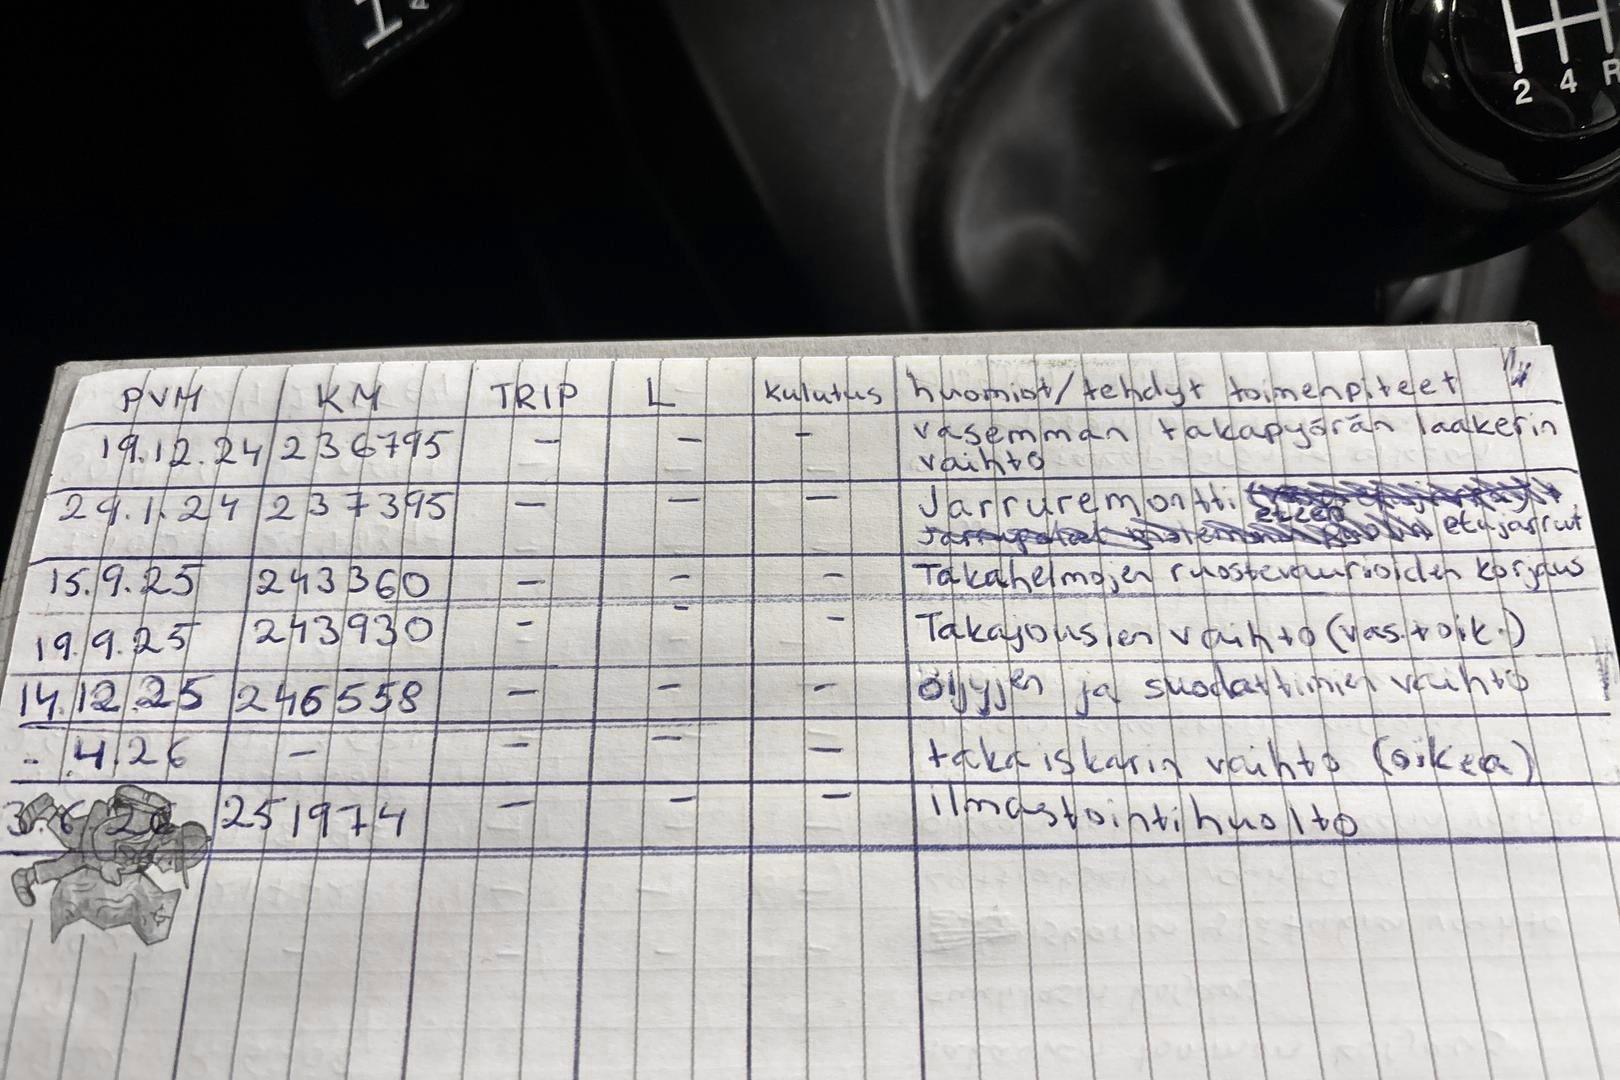 2 4 R
PVM KM TRIP L kulutus huomiot/tehdyt toimenpiteet
19.12.24 236795 - - - vasemman takapyörän laakerin
vaihto
29.1.24 237395 - - - Jarruremontti
etujarrut
15.9.25 243360 - - - Takahelmojen ruostevaurioiden korjaus
19.9.25 243930 - - - Takajousien vaihto (vas.+oik.)
14.12.25 246558 - - - öljyjen ja suodattimien vaihto
- 4.26 - - - - takaiskarin vaihto (oikea)
3.6.26 251974 - - - ilmastointihuolto